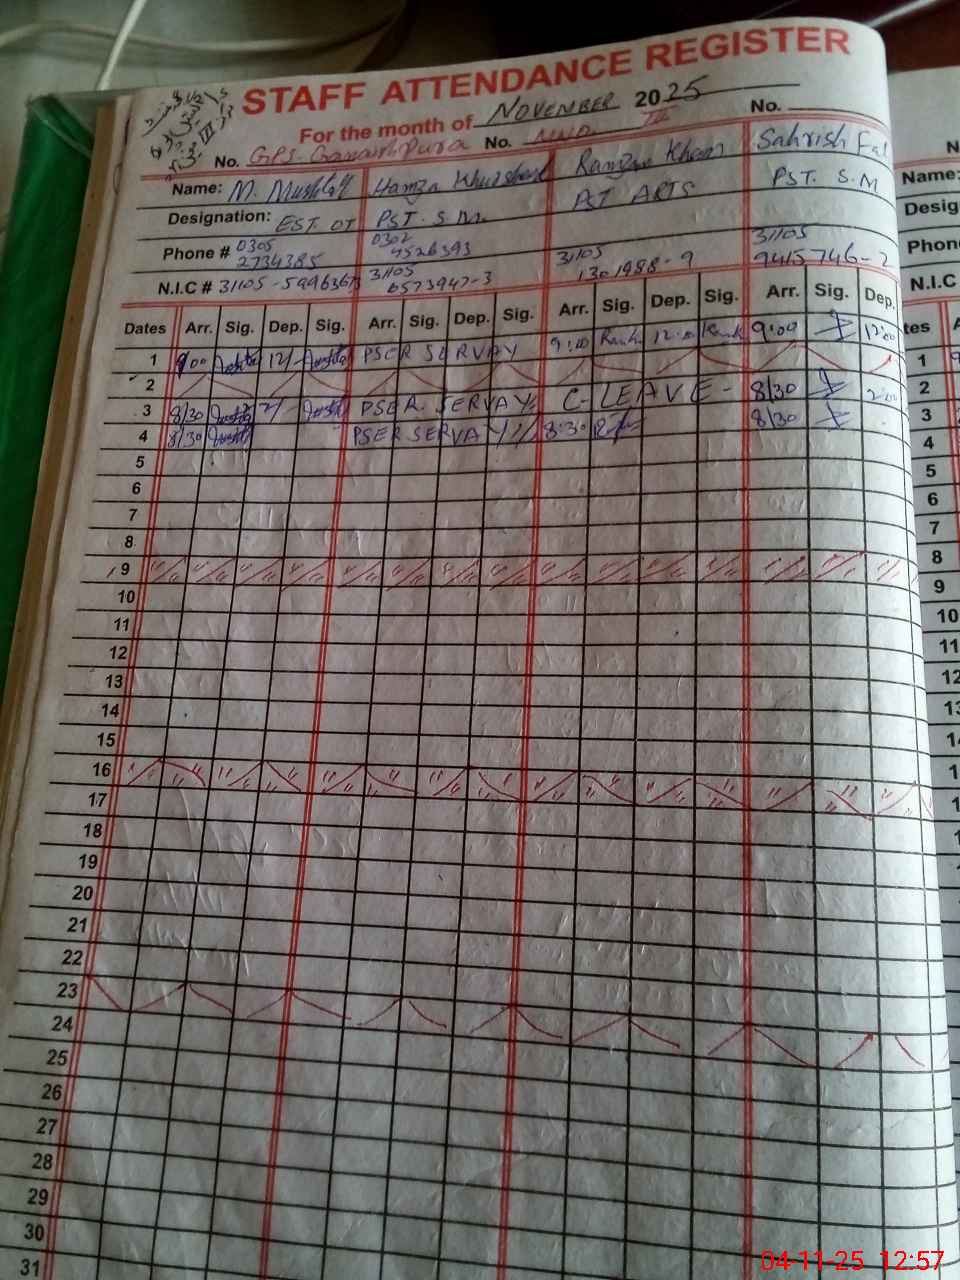 STAFF ATTENDANCE REGISTER
For the month of NOVEMBER 2025
No. GPS. Ganaishpura No. No.
Name: M. Mushtaq Hamza Khurshid Ramzan Kham Sahrish Fat
Designation: EST. OT PST. S.M. PST ARTS PST. S.M
Phone # 0305 2734385 0302 4526393
N.I.C # 31105-5996367 31105 6573947-3 31105 1301988-9 31105 9415746-2
Dates Arr. Sig. Dep. Sig. Arr. Sig. Dep. Sig. Arr. Sig. Dep. Sig. Arr. Sig. Dep.
1 9:00 12/- PSER SERVAY 9:00 12:00 9:00 12:00
2
3 8/30 2/- PSER. SERVAY C-LEAVE- 8/30 2:00
4 8/30 PSER SERVAY 8:30 8/30
5
6
7
8
9
10
11
12
13
14
15
16
17
18
19
20
21
22
23
24
25
26
27
28
29
30
31
Name:
Desig
Phone
N.I.C
tes
1
2
3
4
5
6
7
8
9
10
11
12
13
14
04-11-25 12:57